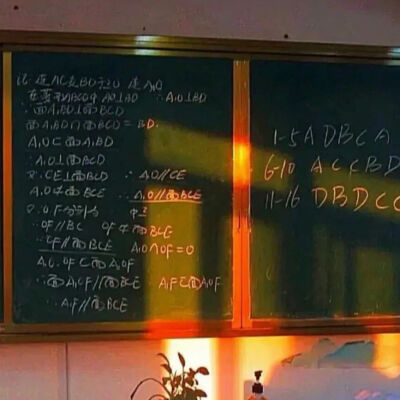 证:连AC交BD于O 连A₁O
在菱形ABCD中 AO⊥BD ∴A₁O⊥BD
∵面A₁BD⊥面BCD
面A₁BD∩面BCD=BD
A₁O⊂面A₁BD
∴A₁O⊥面BCD
又∵CE⊥面BCD ∴A₁O//CE
A₁O⊄面BCE ∴A₁O//面BCE
又∵O、F分别为
∴OF//BC OF⊄面BCE
∴OF//面BCE A₁O∩OF=O
A₁O、OF⊂面A₁OF
∴面A₁OF//面BCE A₁F⊂面A₁OF
∴A₁F//面BCE
1-5 A D B C A
6-10 A C C B D
11-16 D B D C C